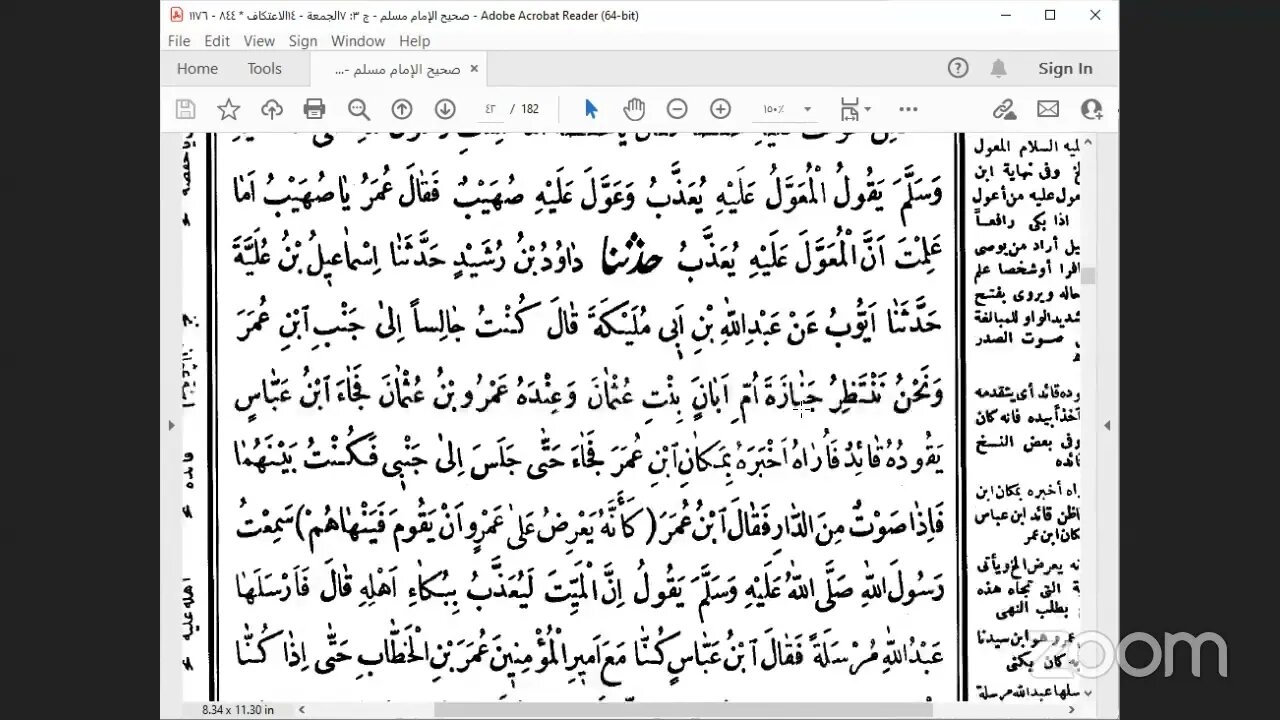 صحيح الإمام مسلم - ج ٣: ٧الجمعة - ١٤الاعتكاف * ٨٤٤ - ١١٧٦ - Adobe Acrobat Reader (64-bit)
File Edit View Sign Window Help
Home Tools صحيح الإمام مسلم -... × Sign In
٤٣ / 182 ١٥٠٪
وَسَلَّمَ يَقُولُ الْمُعَوَّلُ عَلَيْهِ يُعَذَّبُ وَعَوَّلَ عَلَيْهِ صُهَيْبٌ فَقَالَ عُمَرُ يَا صُهَيْبُ اَمَا
عَلِمْتَ اَنَّ الْمُعَوَّلَ عَلَيْهِ يُعَذَّبُ حدثنا دَاوُدُ بْنُ رُشَيْدٍ حَدَّثَنَا اِسْمَاعِيلُ بْنُ عُلَيَّةَ
حَدَّثَنَا اَيُّوبُ عَنْ عَبْدِاللّٰهِ بْنِ اَبِي مُلَيْكَةَ قَالَ كُنْتُ جَالِساً اِلىٰ جَنْبِ ابْنِ عُمَرَ
وَنَحْنُ نَنْتَظِرُ جَنَازَةَ اُمِّ اَبَانٍ بِنْتِ عُثْمَانَ وَعِنْدَهُ عَمْرُو بْنُ عُثْمَانَ فَجَاءَ ابْنُ عَبَّاسٍ
يَقُودُهُ قَائِدٌ فَاُرَاهُ اَخْبَرَهُ بِمَكَانِ ابْنِ عُمَرَ فَجَاءَ حَتّٰى جَلَسَ اِلىٰ جَنْبِي فَكُنْتُ بَيْنَهُمَا
فَاِذَا صَوْتٌ مِنَ الدَّارِ فَقَالَ ابْنُ عُمَرَ (كَأَنَّهُ يَعْرِضُ عَلىٰ عَمْرٍو اَنْ يَقُومَ فَيَنْهَاهُمْ) سَمِعْتُ
رَسُولَ اللّٰهِ صَلَّى اللّٰهُ عَلَيْهِ وَسَلَّمَ يَقُولُ اِنَّ الْمَيِّتَ لَيُعَذَّبُ بِبُكَاءِ اَهْلِهِ قَالَ فَاَرْسَلَهَا
عَبْدُاللّٰهِ مُرْسَلَةً فَقَالَ ابْنُ عَبَّاسٍ كُنَّا مَعَ اَمِيرِ الْمُؤْمِنِينَ عُمَرَ بْنِ الْخَطَّابِ حَتّٰى اِذَا كُنَّا
ليه السلام المعول
وفى نهاية ابن
مول عليه من أعول
اذا بكى رافعاً
يل أراد من يوصى
افرا أو شخصا علم
حاله ويروى بفتح
شديد الواو للمبالغة
صوت الصدر
وده قائد أى يتقدمه
آخذاً بيده فانه كان
وفى بعض النسخ
قائده
راه أخبره بمكان ابن
اظن قائد ابن عباس
كان ابن عمر
نه يعرض الخ ويأتى
ة التى تجاه هذه
بطلب النهى
عمرو هو ابن سيدنا
نه كان بكى
سلها عبدالله مرسلة
8.34 x 11.30 in
zoom